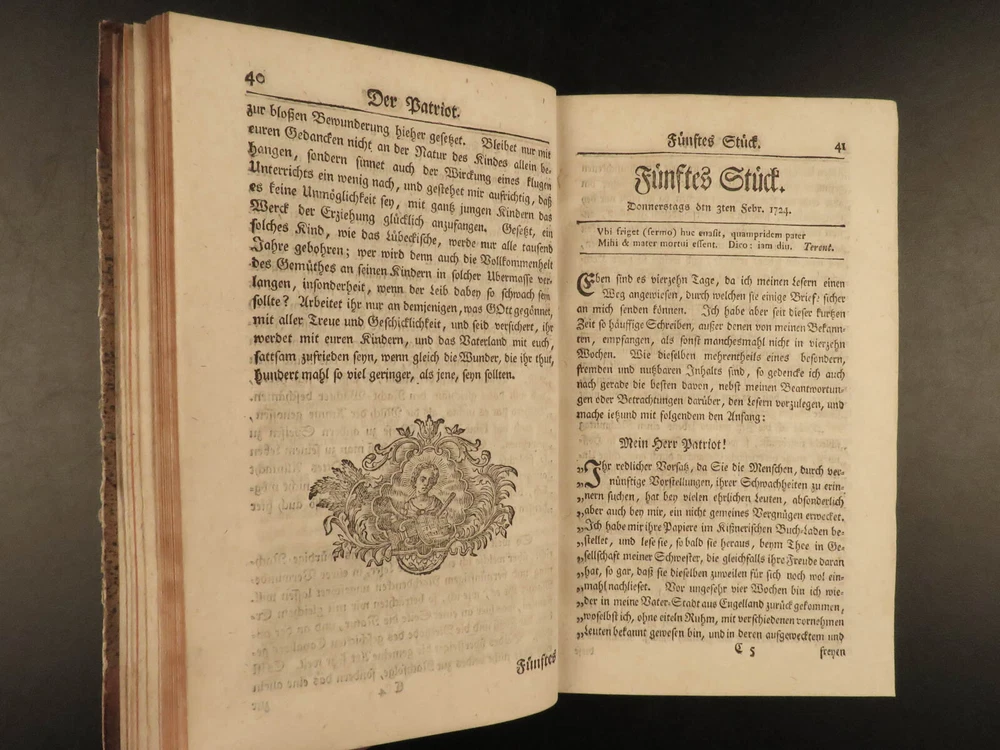 40
Der Patriot.
zur bloßen Bewunderung hieher gesetzet. Bleibet nur mit
euren Gedancken nicht an der Natur des Kindes allein be-
hangen, sondern sinnet auch der Wirckung eines klugen
Unterrichts ein wenig nach, und gestehet mir aufrichtig, daß
es keine Unmöglichkeit sey, mit gantz jungen Kindern das
Werck der Erziehung glücklich anzufangen. Gesetzt, ein
solches Kind, wie das Lübeckische, werde nur alle tausend
Jahre gebohren; wer wird denn auch die Vollkommenheit
des Gemüthes an seinen Kindern in solcher Ubermasse ver-
langen, insonderheit, wenn der Leib dabey so schwach seyn
sollte? Arbeitet ihr nur an demjenigen, was GOtt gegönnet,
mit aller Treue und Geschicklichkeit, und seid versichert, ihr
werdet mit euren Kindern, und das Vaterland mit euch,
sattsam zufrieden seyn, wenn gleich die Wunder, die ihr thut,
hundert mahl so viel geringer, als jene, seyn sollten.
Fünftes
Fünftes Stück.
41
Fünftes Stück.
Donnerstags den 3ten Febr. 1724.
Vbi friget (sermo) huc euasit, quampridem pater
Mihi & mater mortui essent. Dico: iam diu. Terent.
Eben sind es vierzehn Tage, da ich meinen Lesern einen
Weg angewiesen, durch welchen sie einige Briefe sicher
an mich senden können. Ich habe aber seit dieser kurtzen
Zeit so häuffige Schreiben, ausser denen von meinen Bekann-
ten, empfangen, als sonst manchesmahl nicht in vierzehn
Wochen. Wie dieselben mehrentheils eines besondern,
fremden und nutzbaren Inhalts sind, so gedencke ich auch
nach gerade die besten davon, nebst meinen Beantwortun-
gen oder Betrachtungen darüber, den Lesern vorzulegen, und
mache ietzund mit folgendem den Anfang:
Mein Herr Patriot!
„Ihr redlicher Vorsatz, da Sie die Menschen, durch ver-
„nünftige Vorstellungen, ihrer Schwachheiten zu erin-
„nern suchen, hat bey vielen ehrlichen Leuten, absonderlich
„aber auch bey mir, ein nicht gemeines Vergnügen erwecket.
„Ich habe mir ihre Papiere im Kißnerischen Buch-Laden be-
„stellet, und lese sie, so bald sie heraus, beym Thee in Ge-
„sellschaft meiner Schwester, die gleichfalls ihre Freude daran
„hat, so gar, daß sie dieselben zuweilen für sich noch wol ein-
„mahl nachlieset. Vor ungefehr vier Wochen bin ich wie-
„der in meine Vater-Stadt aus Engelland zurück gekommen,
„woselbst ich, ohne eiteln Ruhm, mit verschiedenen vornehmen
„Leuten bekannt gewesen bin, und in deren aufgewecktem und
C 5
freyen